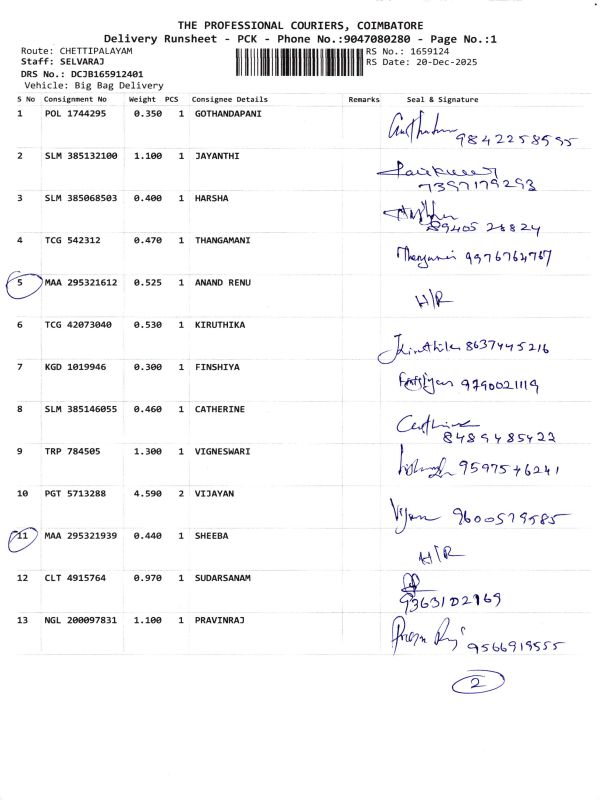 THE PROFESSIONAL COURIERS, COIMBATORE
Delivery Runsheet - PCK - Phone No.:9047080280 - Page No.:1
Route: CHETTIPALAYAM RS No.: 1659124
Staff: SELVARAJ RS Date: 20-Dec-2025
DRS No.: DCJB165912401
Vehicle: Big Bag Delivery
S No Consignment No Weight PCS Consignee Details Remarks Seal & Signature
1 POL 1744295 0.350 1 GOTHANDAPANI
9842258595
2 SLM 385132100 1.100 1 JAYANTHI
7397179293
3 SLM 385068503 0.400 1 HARSHA
89405 28824
4 TCG 542312 0.470 1 THANGAMANI
9976764767
5 MAA 295321612 0.525 1 ANAND RENU
H/R
6 TCG 42073040 0.530 1 KIRUTHIKA
Kiruthika 8637445216
7 KGD 1019946 0.300 1 FINSHIYA
9790021119
8 SLM 385146055 0.460 1 CATHERINE
8489485422
9 TRP 784505 1.300 1 VIGNESWARI
9597546241
10 PGT 5713288 4.590 2 VIJAYAN
9600579585
11 MAA 295321939 0.440 1 SHEEBA
H/R
12 CLT 4915764 0.970 1 SUDARSANAM
9363102969
13 NGL 200097831 1.100 1 PRAVINRAJ
9566919555
2